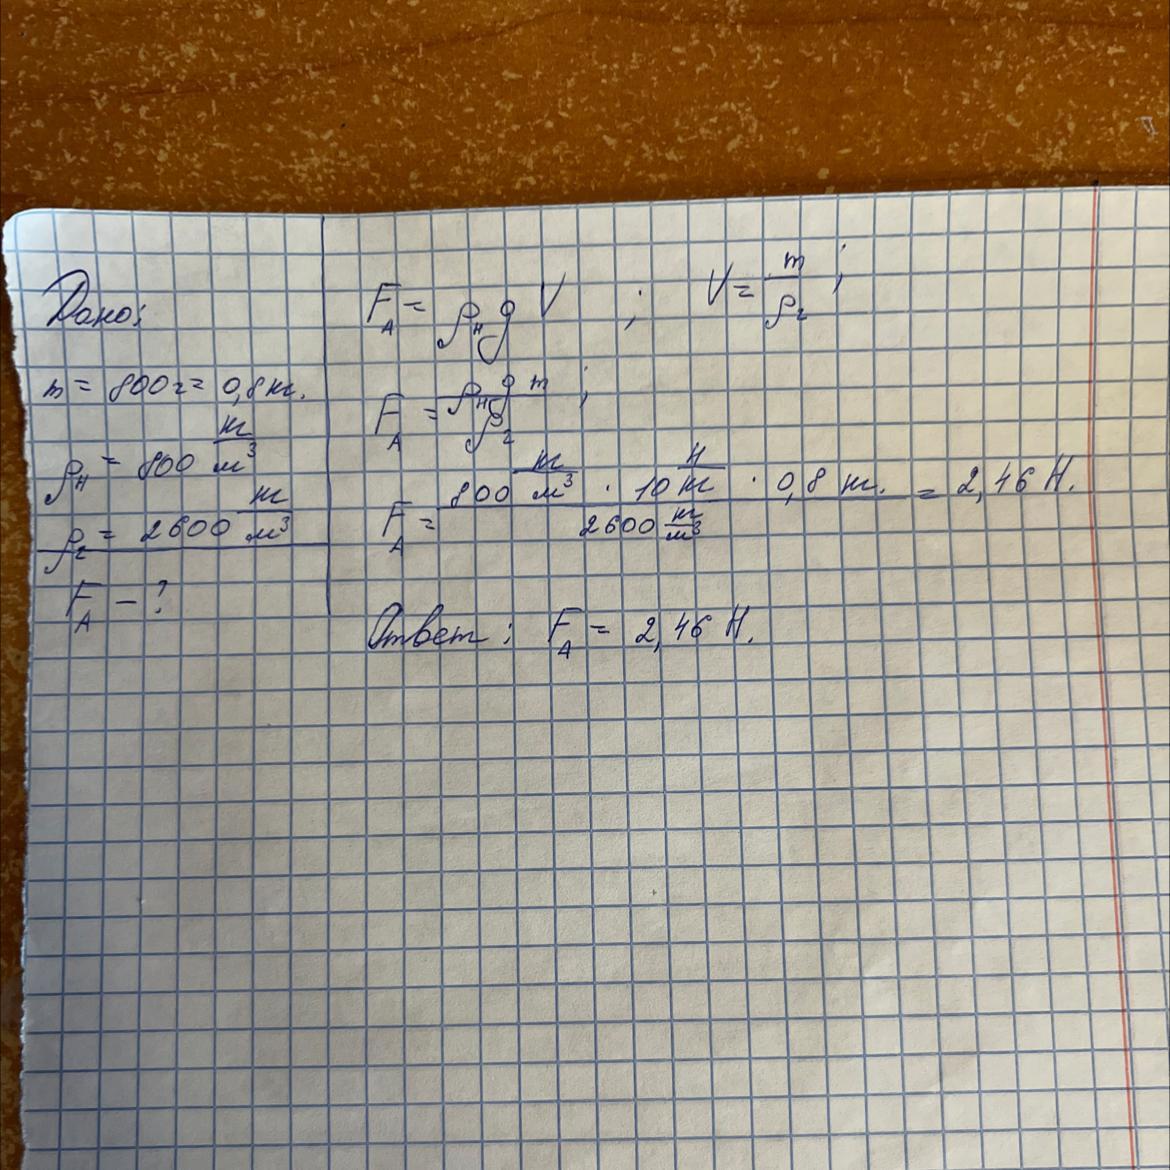 Дано:
m = 800 г = 0,8 кг.
ρн = 800 кг/м³
ρг = 2600 кг/м³
FА – ?
FА = ρн g V ; V = m/ρг ;
FА = ρн g m / ρг ;
FА = 800 кг/м³ · 10 Н/кг · 0,8 кг. / 2600 кг/м³ = 2,46 Н.
Ответ : FА = 2,46 Н.